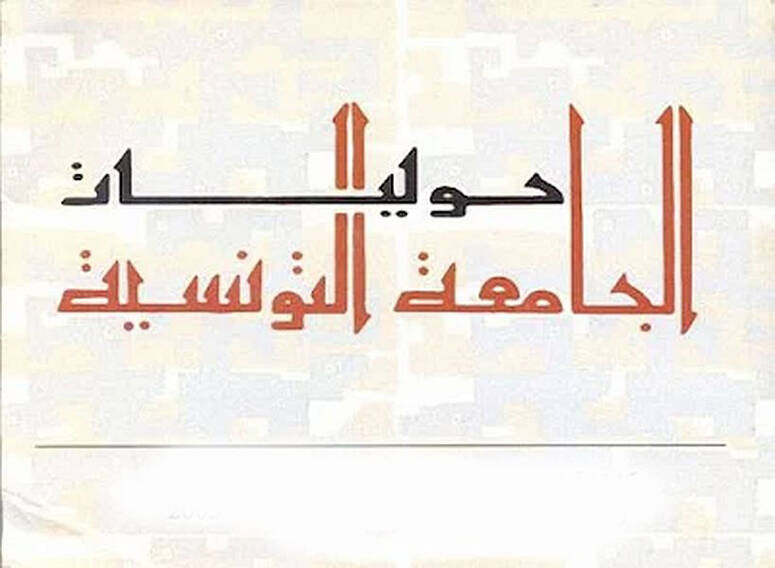 حوليات
الجامعة التونسية